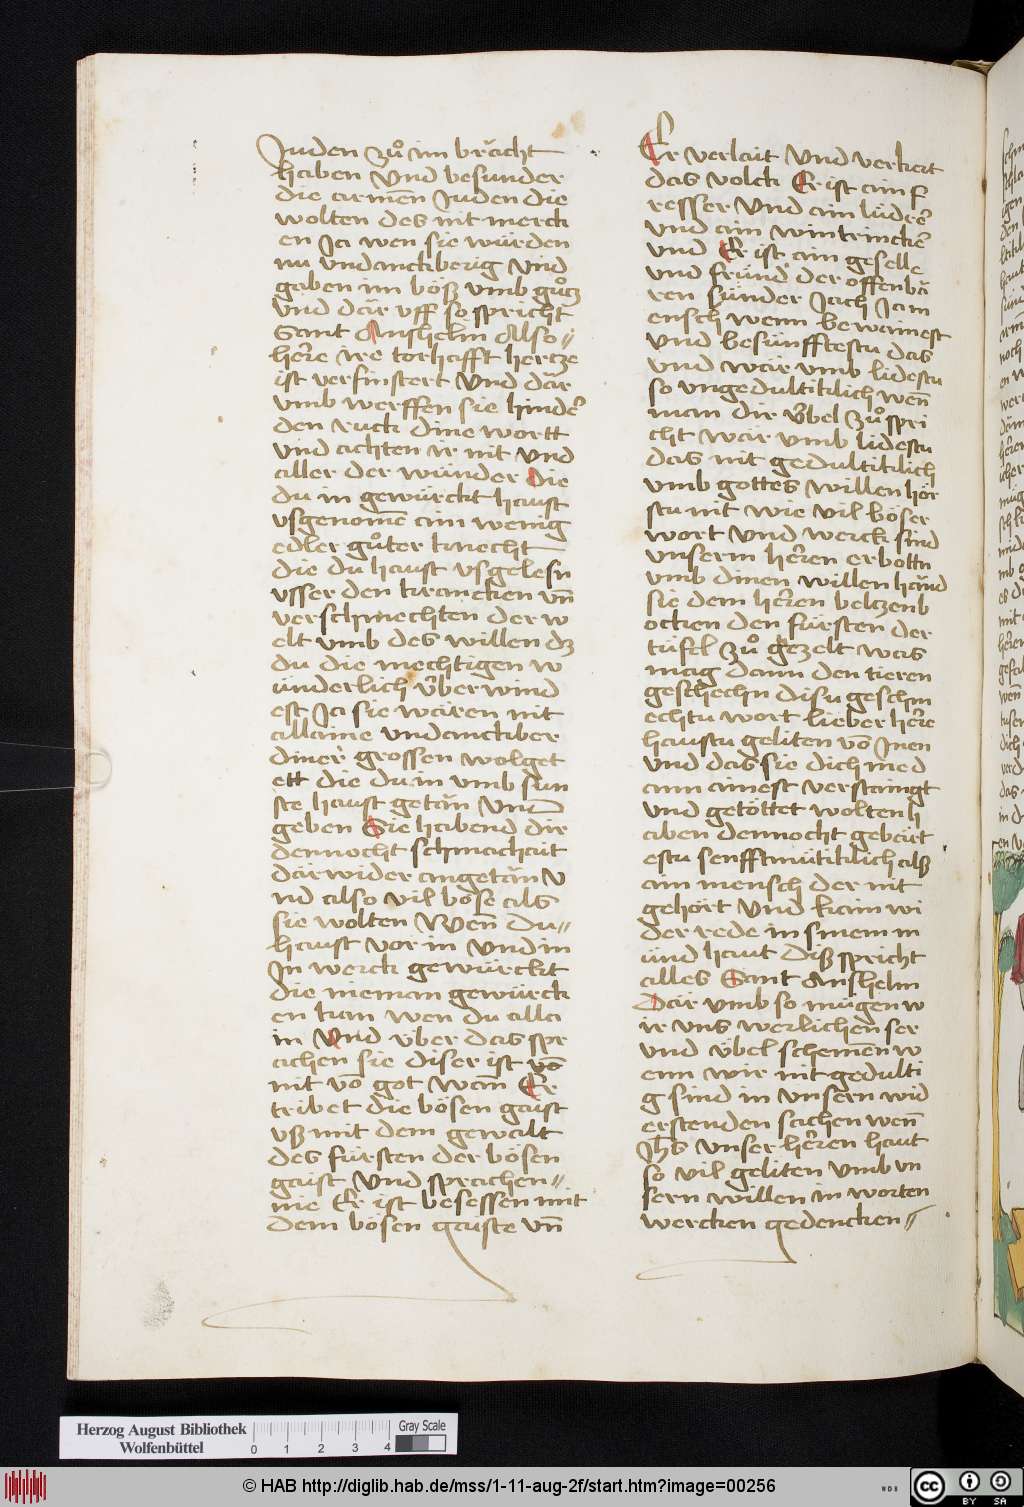 Juden zuͦ im bråcht
haben Vnd besunder
die armen̄ Juden die
wolten des nit merck
en Ja wen sie wurden
nu vndanckberig Vnd
gaben im böß vmb guͦtz
Vnd dar vff so spricht
Sant Anshelm Also //
here ire torhafft hertze
ist verfinstert Vnd dar
vmb werffen sie hinder
den ruck dine wortt
vnd achten ir nit vnd
aller der wunder die
du in gewürckt haust
vsgenomē aim wenig
edler guͦter knecht
die du haust vsgelesn
vsser den krancken vn̄
verschmechten der w
elt vmb des willen dz
du die mechtigen w
underlich über wind
est Ja sie wåren nit
allaine vndanckber
diner grossen wolget
ett die du in vmb sun
ste haust getån Vnd
geben Sie habend dir
dennocht schmachait
darwider angetån v
nd also vil böse als
sie wolten Wen̄ du //
haust vor in vnd in
In werck gewürckt
die nieman gewürck
en kan wen du alla
in Vnd über das spr
achen sie diser ist vō
nit vō got wann Er
tribet die bösen gaist
vß mit dem gewalt
des fürsten der bösen
gaist Vnd sprachen //
nie Er ist besessen mit
dem bösen gaiste vn̄
Er verlait Vnd verkert
das volck Er ist ain f
resser Vnd ain luder
vnd aim wintrincker
vnd Er ist ain geselle
vnd fründ der offenbå
ren sünder Jach Jam
ensch wenn bewainest
vnd besunfftestu das
vnd war vmb lidestu
so vngedultiklich wen̄
man dir v̈bel zuͦ spri
cht war vmb lidestu
das nit gedultiklich
vmb gottes willen hör
stu nit wie vil böser
wort Vnd werck sind
vnserm heren erbottn
vmb dinen willen hånd
sie dem heren belczenb
ocken den fürsten der
tüfel zuͦ gezelt was
mag dann den tieren
geschechn disu geschm
echtu wort lieber here
haustu geliten vō Jnen
vnd das sie dich nied
ann ainest verstaingt
vnd getöttet wolten h
aben dennocht gebårt
estu senfftmütiklich alß
ain mensch der nit
gehört Vnd kain wi
der rede in sinem m
und haut diß spricht
alles Sant Anshelm
Dar vmb so mügen w
ir vns werlichen ser
vnd übel schemen̄ w
enn wir nit gedulti
g sind in vnsern wid
erstenden sachen wen̄
Jhs vnser heren haut
so vil geliten vmb vn
sern willen in worten
wercken gedencken //
Herzog August Bibliothek
Wolfenbüttel
0 1 2 3 4
Gray Scale
© HAB http://diglib.hab.de/mss/1-11-aug-2f/start.htm?image=00256
WDB
cc BY SA